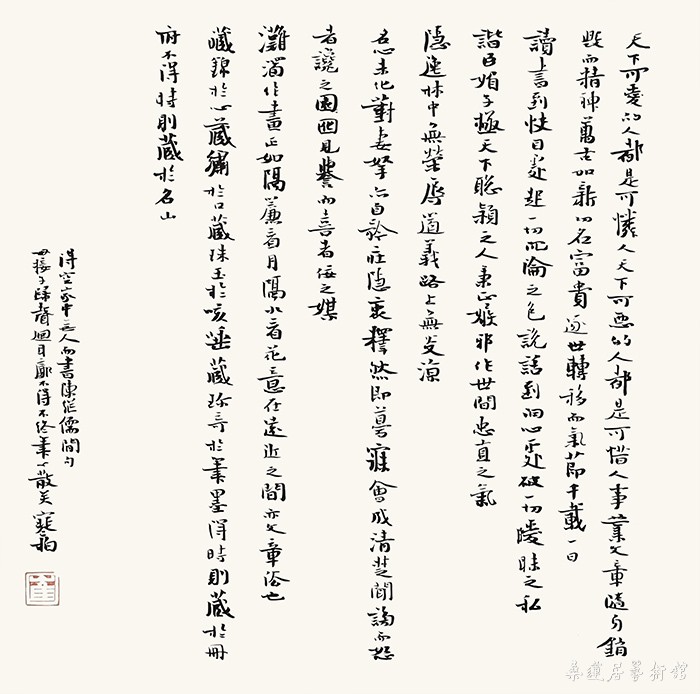 天下可愛的人都是可憐人天下可惡的人都是可惜人事業文章隨身銷
毀而精神萬古如新功名富貴逐世轉移而氣節千載一日
讀書到快目處起一切沉淪之色說話到洞心處破一切曖昧之私
諧臣媚子極天下聰穎之人秉正嫉邪作世間忠直之氣
隱逸林中無榮辱道義路上無炎涼
名心未化對妻孥亦自矜莊隱衷釋然即夢寐會成清楚聞謗而怒
者讒之囮見譽而喜者佞之媒
灘濁作畫正如隔簾看月隔水看花意在遠近之間亦文章法也
藏錦於心藏繡於口藏珠玉於咳唾藏珍奇於筆墨得時則藏於冊
府不得時則藏於名山
得空家中無人而書陳繼儒閒句
子歸聲迴不得不終筆下散矣
桑蓮居藝術館